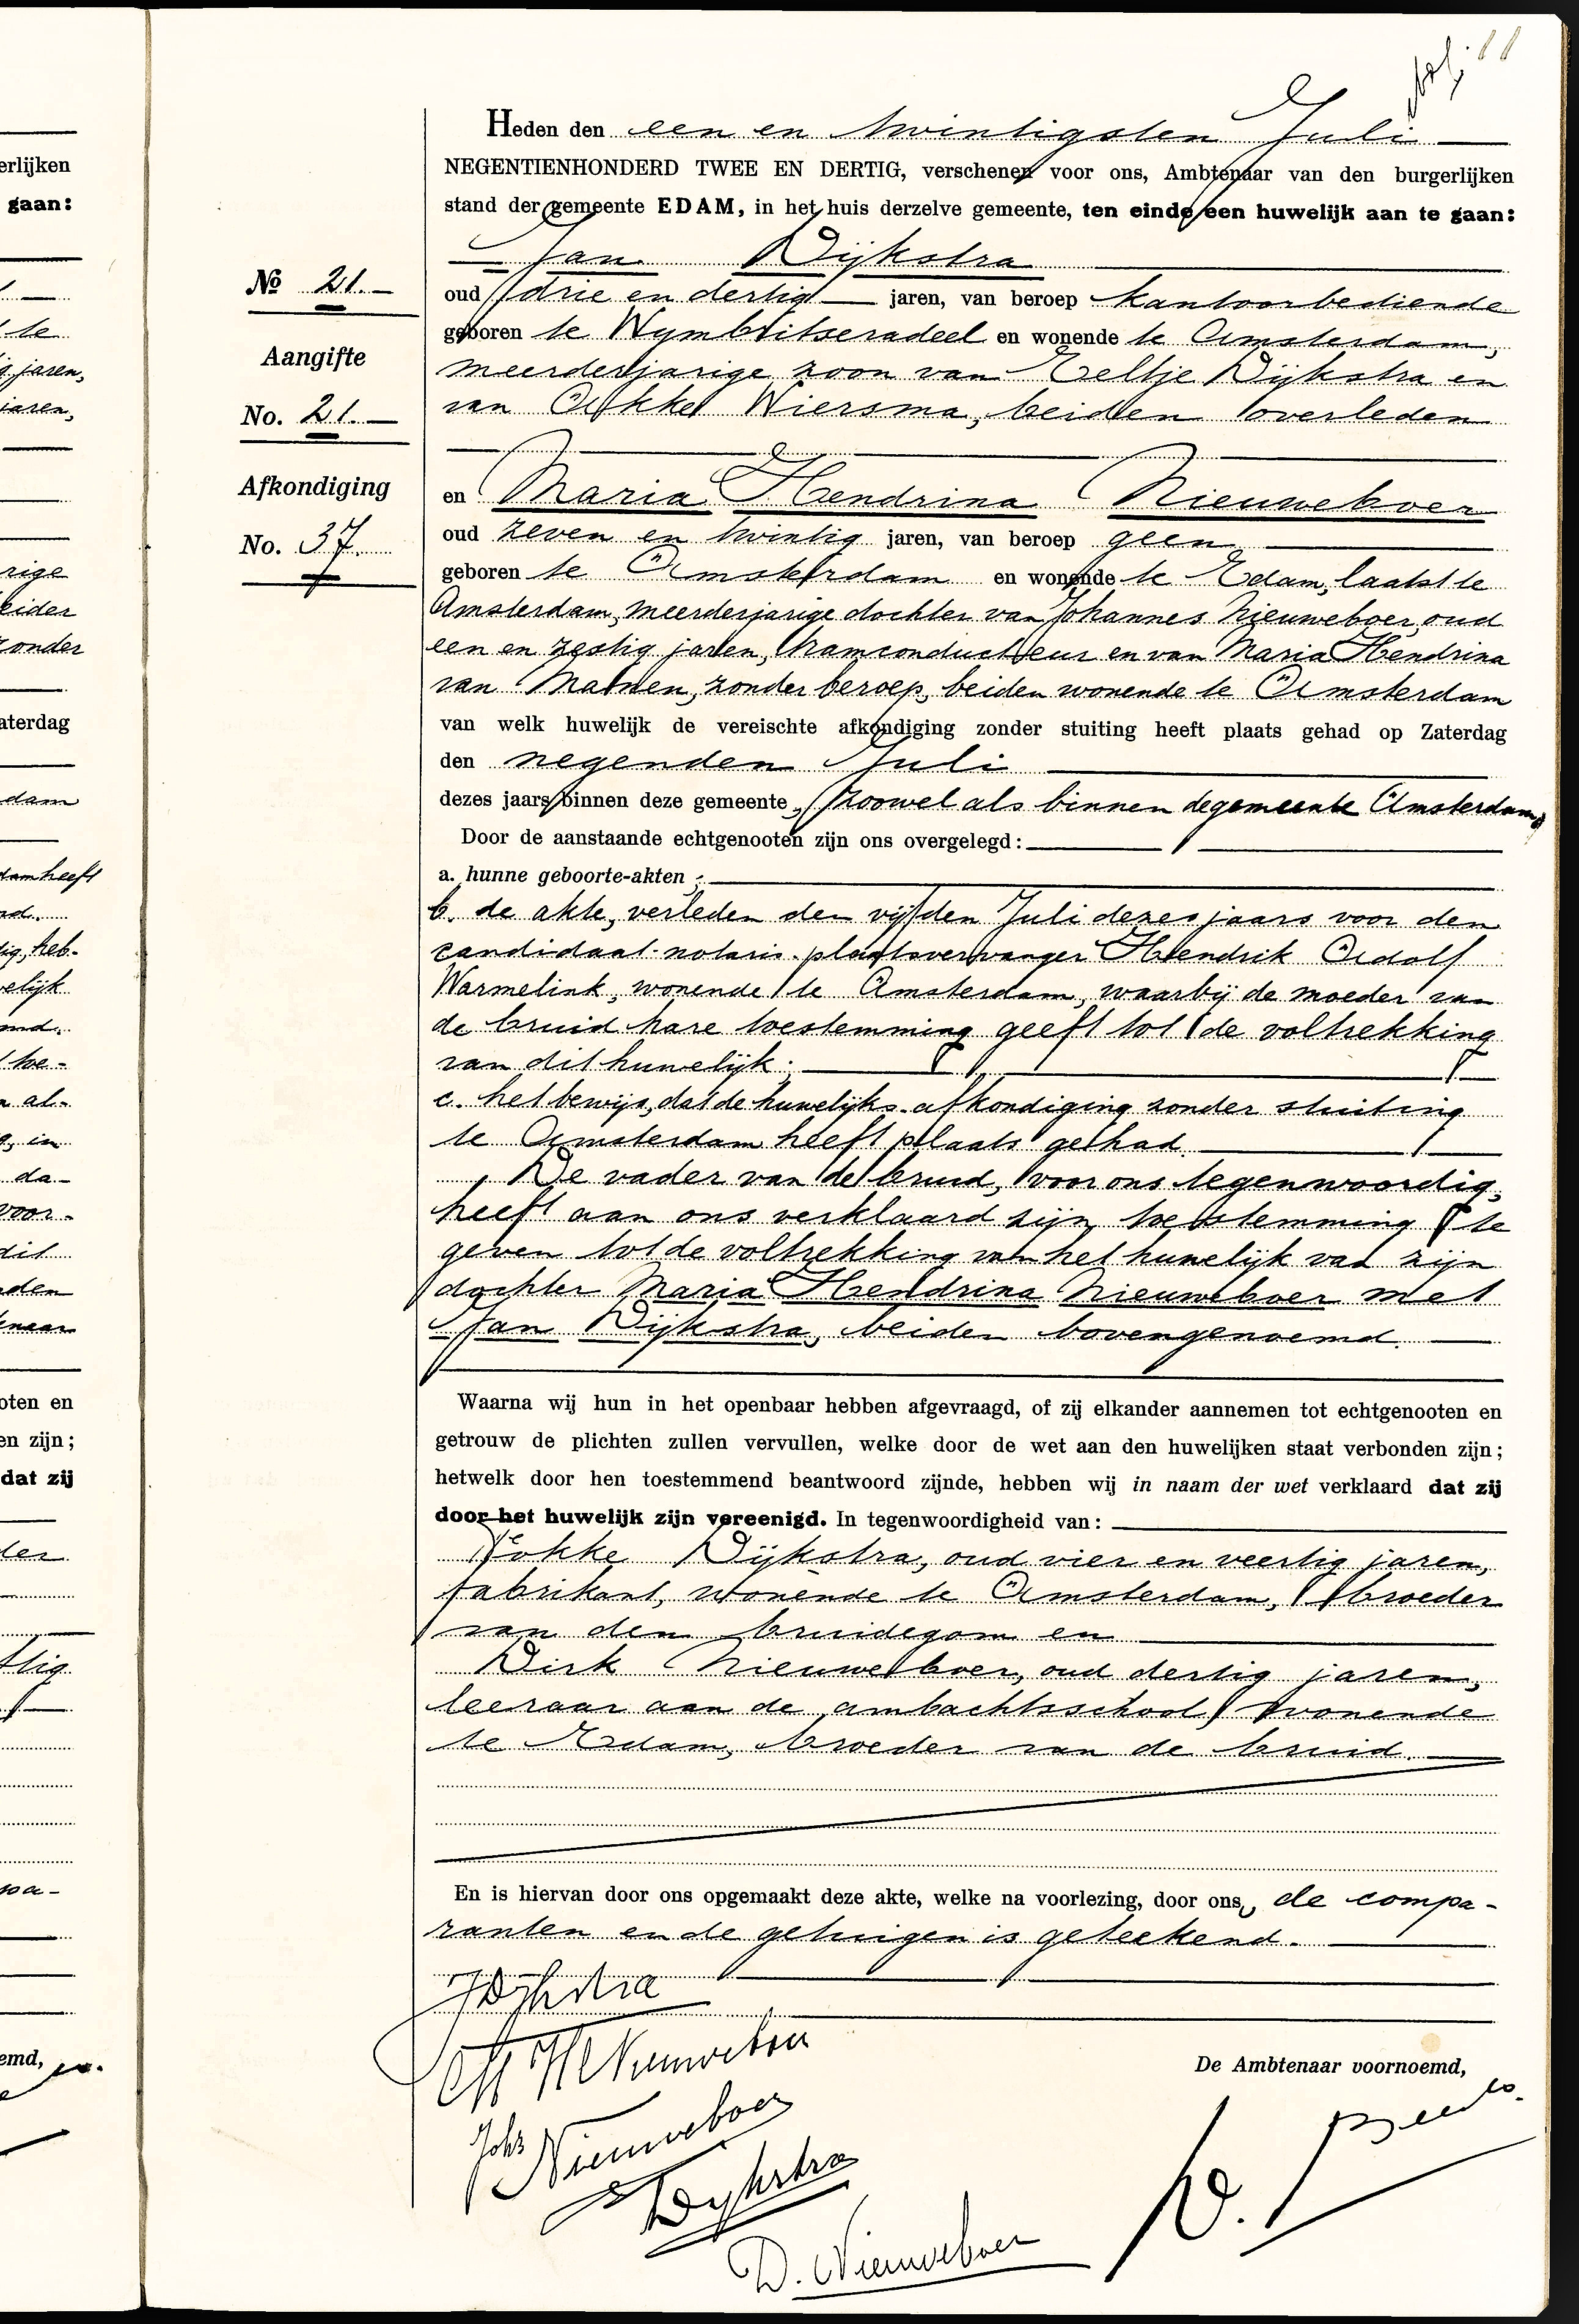 11
Heden den een en twintigsten Juli
NEGENTIENHONDERD TWEE EN DERTIG, verschenen voor ons, Ambtenaar van den burgerlijken
stand der gemeente EDAM, in het huis derzelve gemeente, ten einde een huwelijk aan te gaan:
Jan Dijkstra
oud drie en dertig jaren, van beroep kantoorbediende
geboren te Wymbritseradeel en wonende te Amsterdam,
meerderjarige zoon van Eeltje Dijkstra en
van Aukke Wiersma, beiden overleden
en Maria Hendrina Nieuweboer
oud zeven en twintig jaren, van beroep geen
geboren te Amsterdam en wonende te Edam, laatst te
Amsterdam, meerderjarige dochter van Johannes Nieuweboer, oud
een en zestig jaren, tramconducteur en van Maria Hendrina
van Maanen, zonder beroep, beiden wonende te Amsterdam
van welk huwelijk de vereischte afkondiging zonder stuiting heeft plaats gehad op Zaterdag
den negenden Juli
dezes jaars binnen deze gemeente, zoowel als binnen de gemeente Amsterdam,
Door de aanstaande echtgenooten zijn ons overgelegd:
a. hunne geboorte-akten;
b. de akte, verleden den vijfden Juli dezes jaars voor den
candidaat-notaris-plaatsvervanger Hendrik Adolf
Warmelink, wonende te Amsterdam, waarbij de moeder van
de bruid hare toestemming geeft tot de voltrekking
van dit huwelijk;
c. het bewijs, dat de huwelijks-afkondiging zonder stuiting
te Amsterdam heeft plaats gehad.
De vader van de bruid, voor ons tegenwoordig,
heeft aan ons verklaard zijn toestemming te
geven tot de voltrekking van het huwelijk van zijn
dochter Maria Hendrina Nieuweboer met
Jan Dijkstra, beiden bovengenoemd.
Waarna wij hun in het openbaar hebben afgevraagd, of zij elkander aannemen tot echtgenooten en
getrouw de plichten zullen vervullen, welke door de wet aan den huwelijken staat verbonden zijn;
hetwelk door hen toestemmend beantwoord zijnde, hebben wij in naam der wet verklaard dat zij
door het huwelijk zijn vereenigd. In tegenwoordigheid van:
Fokke Dijkstra, oud vier en veertig jaren,
fabrikant, wonende te Amsterdam, broeder
van den bruidegom en
Dirk Nieuweboer, oud dertig jaren,
leeraar aan de ambachtsschool, wonende
te Edam, broeder van de bruid.
En is hiervan door ons opgemaakt deze akte, welke na voorlezing, door ons, de compa-
ranten en de getuigen is geteekend.
JDijkstra
M H Nieuweboer
Johs Nieuweboer
Dijkstra
D. Nieuweboer
De Ambtenaar voornoemd,
No 21.
Aangifte
No. 21.
Afkondiging
No. 37.
erlijken
gaan:
te
jaren,
jaren,
rige
eider
zonder
aterdag
dam
dam heeft
nd.
dig, heb-
elijk
md.
toe-
n al-
in
da-
voor-
dit
nden
oten en
en zijn;
dat zij
der
tig
pa-
emd,